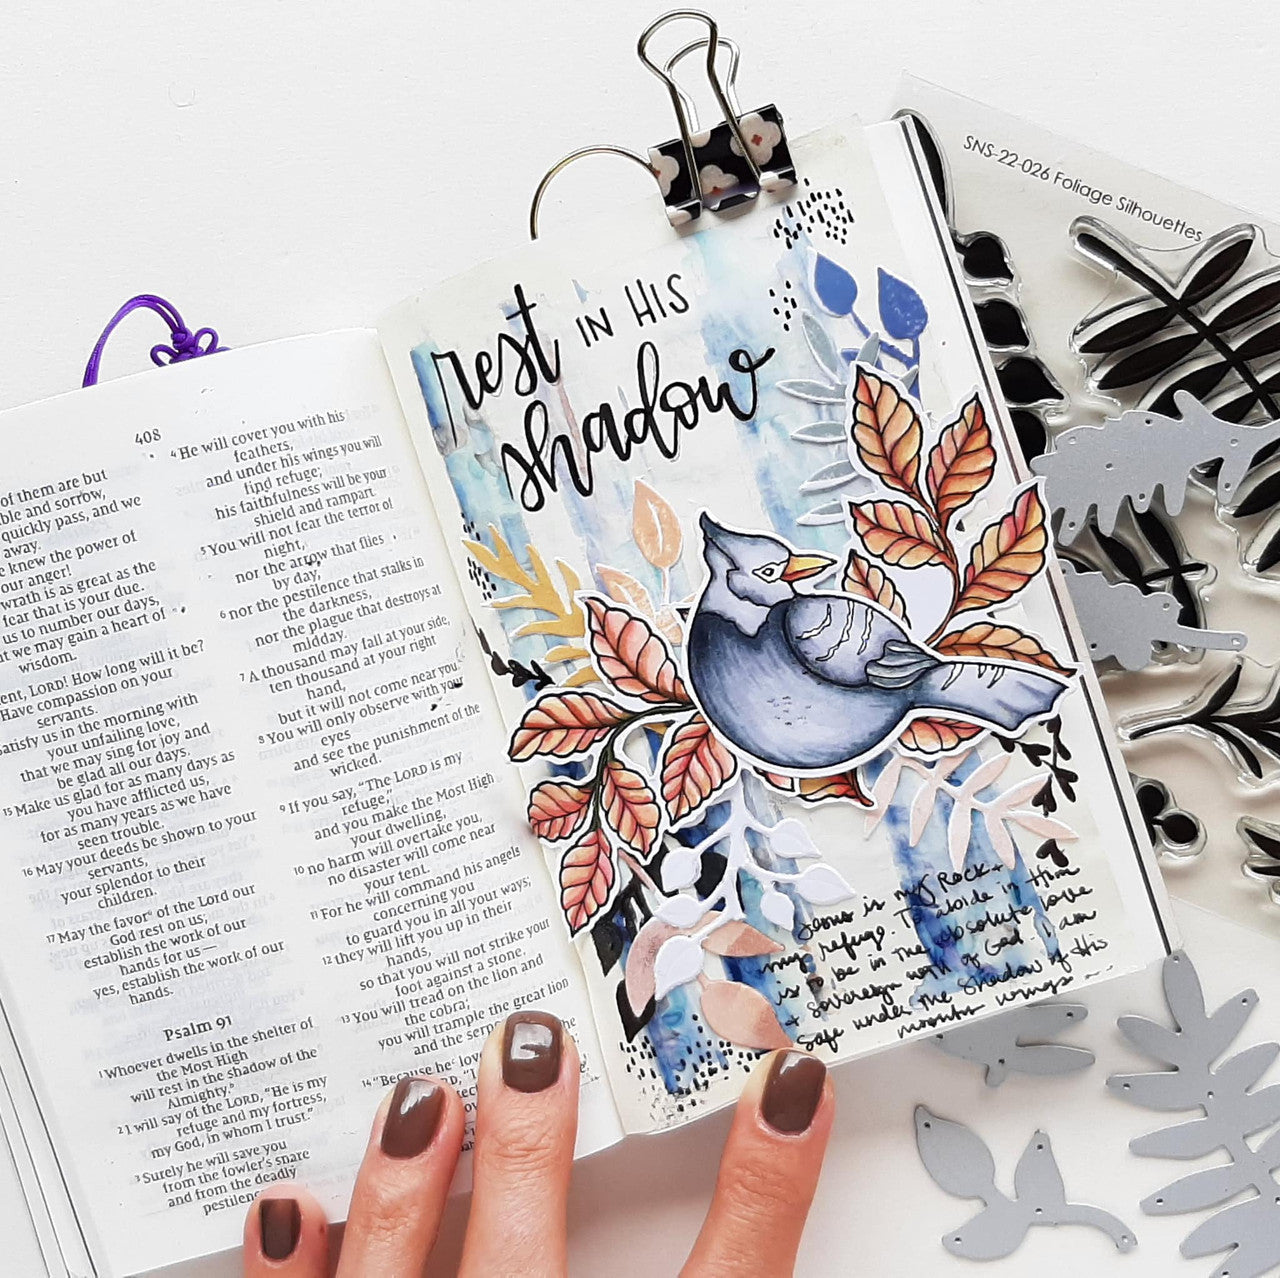 408
of them are but
ble and sorrow,
quickly pass, and we
away.
knew the power of
our anger!
wrath is as great as the
fear that is your due.
us to number our days,
we may gain a heart of
wisdom.
ent, LORD! How long will it be?
Have compassion on your
servants.
satisfy us in the morning with
your unfailing love,
that we may sing for joy and
be glad all our days.
15 Make us glad for as many days as
you have afflicted us,
for as many years as we have
seen trouble.
16 May your deeds be shown to your
servants,
your splendor to their
children.
17 May the favor of the Lord our
God rest on us;
establish the work of our
hands for us—
yes, establish the work of our
hands.
Psalm 91
1 Whoever dwells in the shelter of
the Most High
will rest in the shadow of the
Almighty.
2 I will say of the LORD, "He is my
refuge and my fortress,
my God, in whom I trust."
3 Surely he will save you
from the fowler's snare
and from the deadly
pestilence
4 He will cover you with his
feathers,
and under his wings you will
find refuge;
his faithfulness will be your
shield and rampart
5 You will not fear the terror of
night,
nor the arrow that flies
by day,
6 nor the pestilence that stalks in
the darkness,
nor the plague that destroys at
midday.
7 A thousand may fall at your side,
ten thousand at your right
hand,
but it will not come near you.
8 You will only observe with your
eyes
and see the punishment of the
wicked.
9 If you say, "The LORD is my
refuge,"
and you make the Most High
your dwelling,
10 no harm will overtake you,
no disaster will come near
your tent.
11 For he will command his angels
concerning you
to guard you in all your ways;
12 they will lift you up in their
hands,
so that you will not strike your
foot against a stone.
13 You will tread on the lion and
the cobra;
you will trample the great lion
and the the
14 "Because he
rest IN HIS
shadow
Jesus is my Rock +
my refuge. To abide in Him
is to be in the absolute love
+ sovereign work of God. I am
safe under the shadow of His
wings
SNS-22-026 Foliage Silhouettes